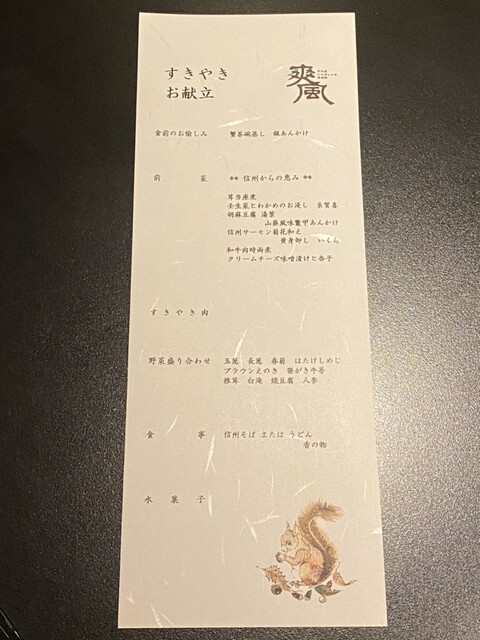 すきやき
お献立
爽風
食前のお愉しみ 蟹茶碗蒸し 銀あんかけ
前菜 ** 信州からの恵み **
壬生菜とわかめのお浸し 糸賀喜
胡麻豆腐 湯葉
山葵風味鼈甲あんかけ
信州サーモン菊花和え
黄身卸し いくら
和牛肉時雨煮
クリームチーズ味噌漬けと杏子
すきやき肉
野菜盛り合わせ 玉葱 長葱 春菊 はたけしめじ
ブラウンえのき 笹がき牛蒡
椎茸 白滝 焼豆腐 人参
食事 信州そば または うどん
香の物
水菓子